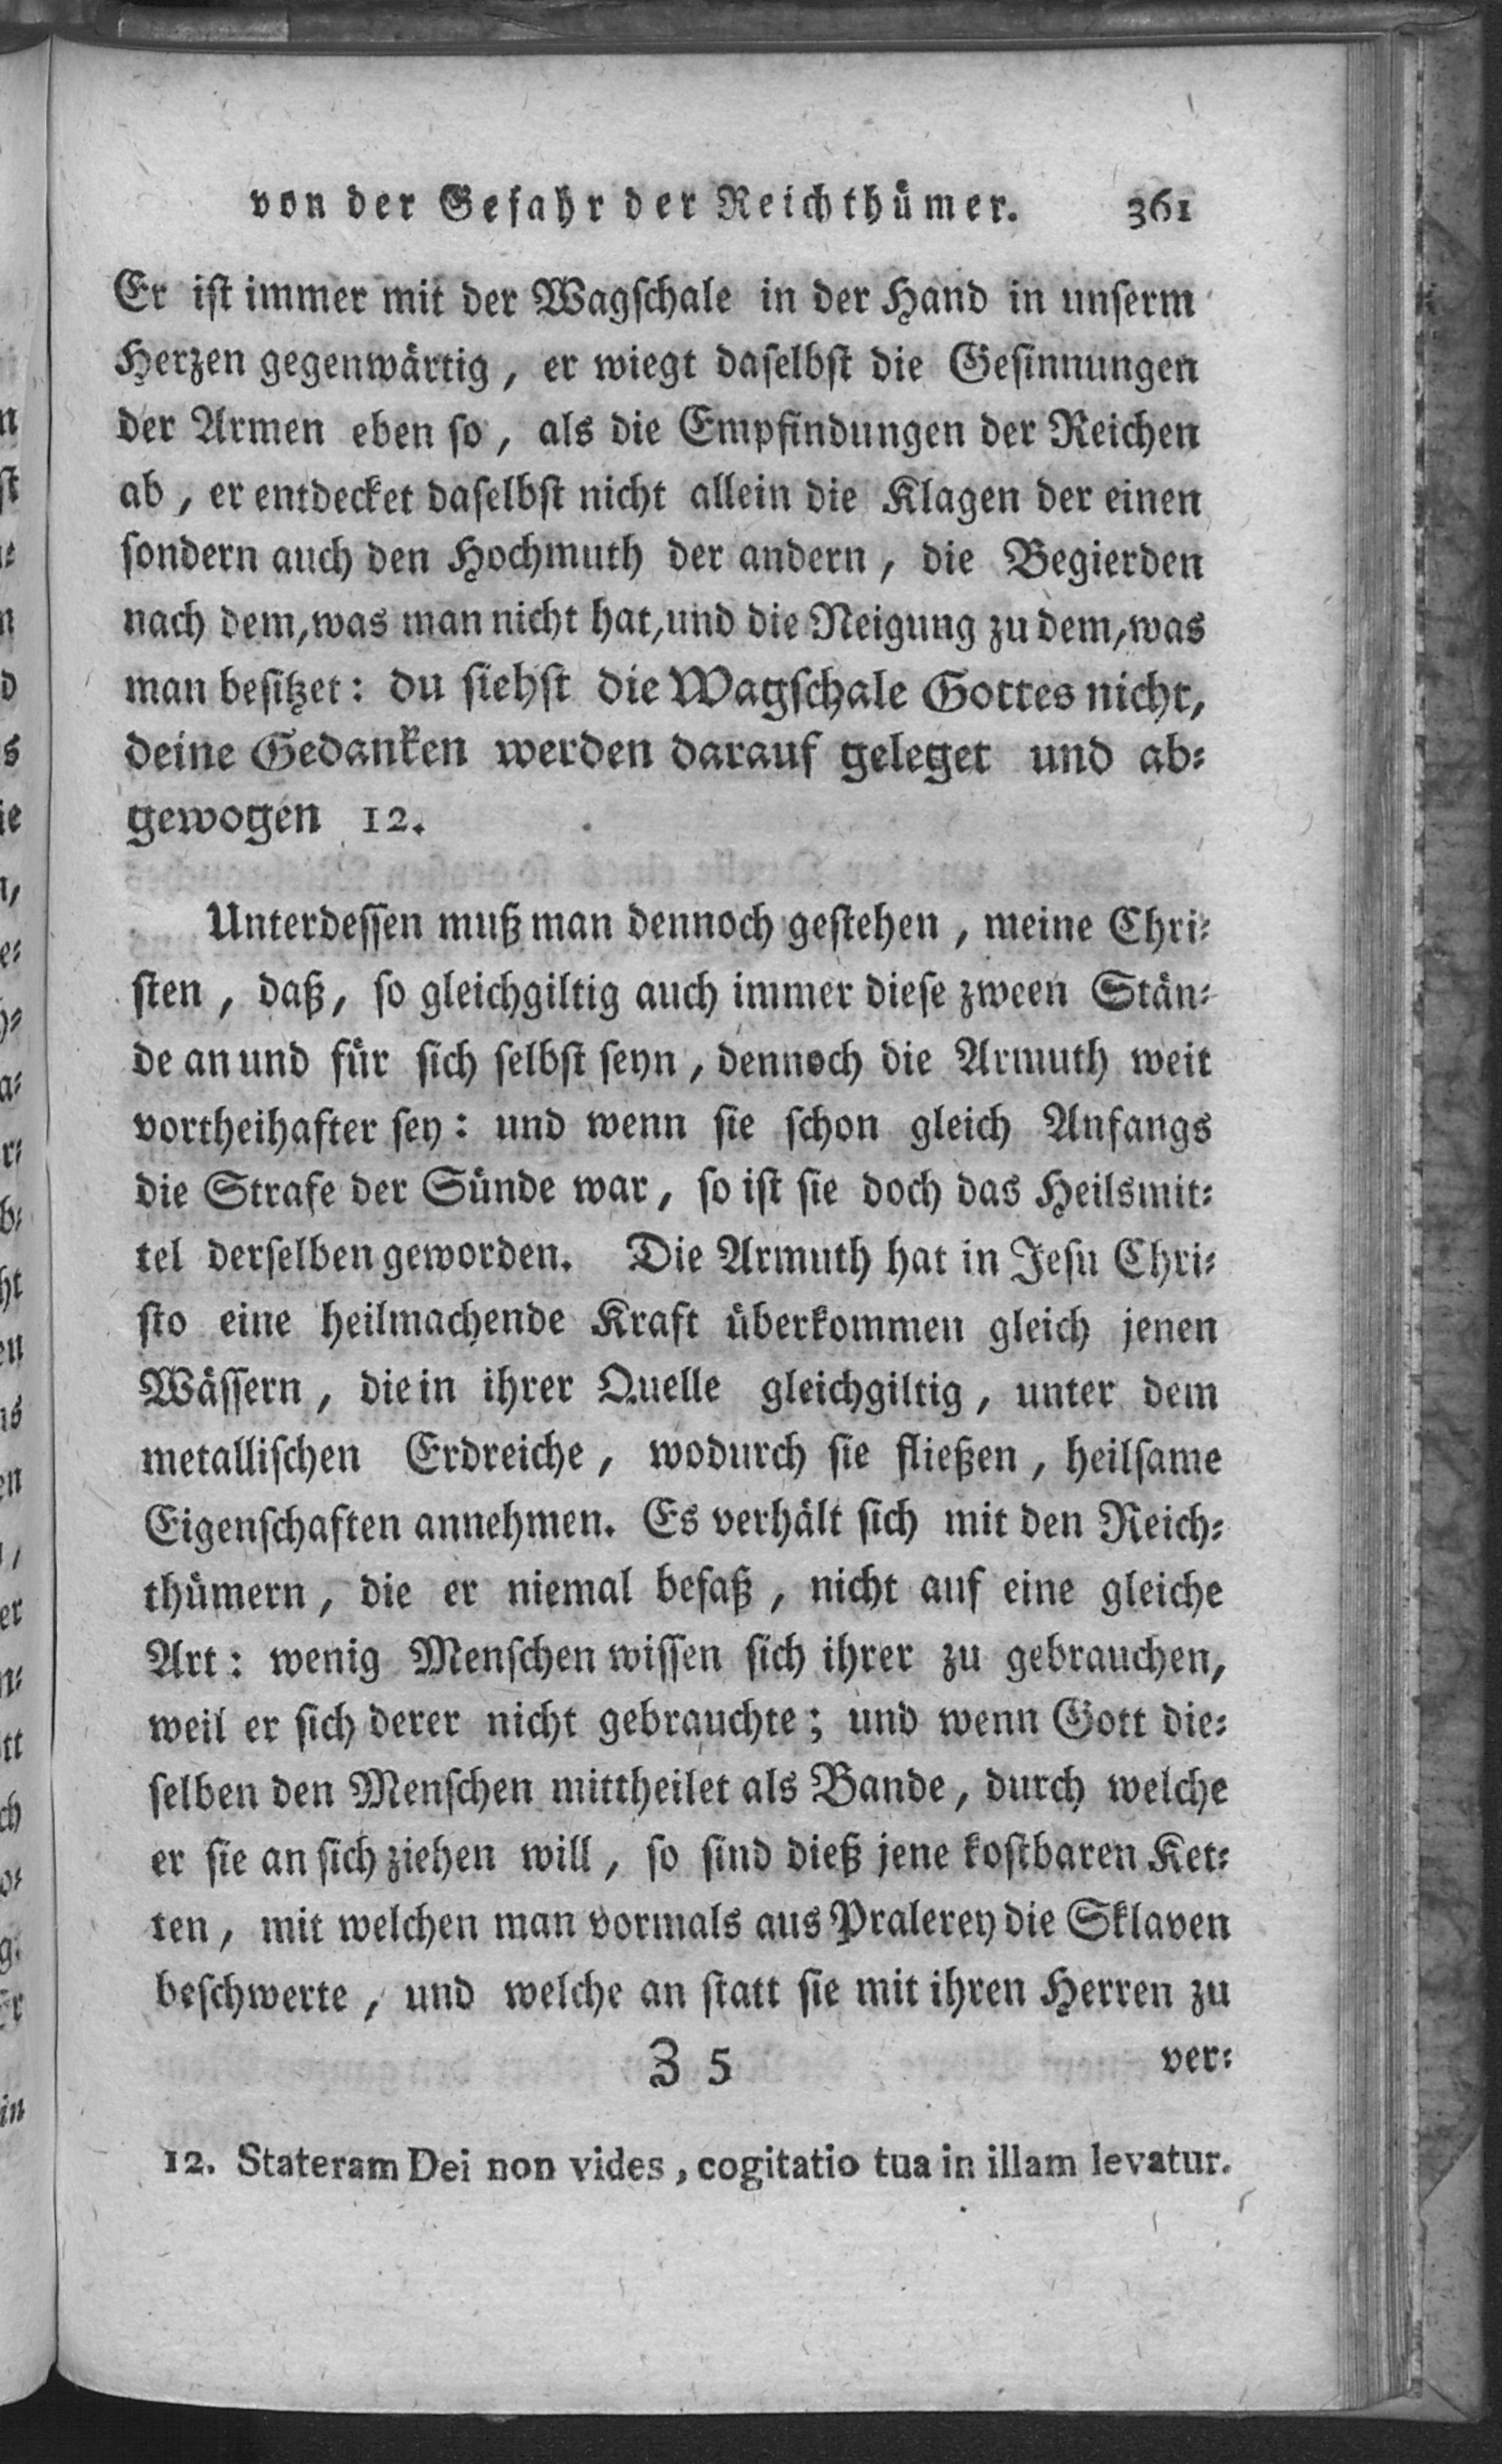 von der Gefahr der Reichthümer. 361
Er ist immer mit der Wagschale in der Hand in unserm
Herzen gegenwärtig, er wiegt daselbst die Gesinnungen
der Armen eben so, als die Empfindungen der Reichen
ab, er entdecket daselbst nicht allein die Klagen der einen
sondern auch den Hochmuth der andern, die Begierden
nach dem, was man nicht hat, und die Neigung zu dem, was
man besitzet: du siehst die Wagschale Gottes nicht,
deine Gedanken werden darauf geleget und ab-
gewogen 12.
Unterdessen muß man dennoch gestehen, meine Chri-
sten, daß, so gleichgiltig auch immer diese zween Stän-
de an und für sich selbst seyn, dennoch die Armuth weit
vortheihafter sey: und wenn sie schon gleich Anfangs
die Strafe der Sünde war, so ist sie doch das Heilsmit-
tel derselben geworden. Die Armuth hat in Jesu Chri-
sto eine heilmachende Kraft überkommen gleich jenen
Wässern, die in ihrer Quelle gleichgiltig, unter dem
metallischen Erdreiche, wodurch sie fließen, heilsame
Eigenschaften annehmen. Es verhält sich mit den Reich-
thümern, die er niemal besaß, nicht auf eine gleiche
Art: wenig Menschen wissen sich ihrer zu gebrauchen,
weil er sich derer nicht gebrauchte; und wenn Gott die-
selben den Menschen mittheilet als Bande, durch welche
er sie an sich ziehen will, so sind dieß jene kostbaren Ket-
ten, mit welchen man vormals aus Pralerey die Sklaven
beschwerte, und welche an statt sie mit ihren Herren zu
Z 5 ver-
12. Stateram Dei non vides, cogitatio tua in illam levatur.